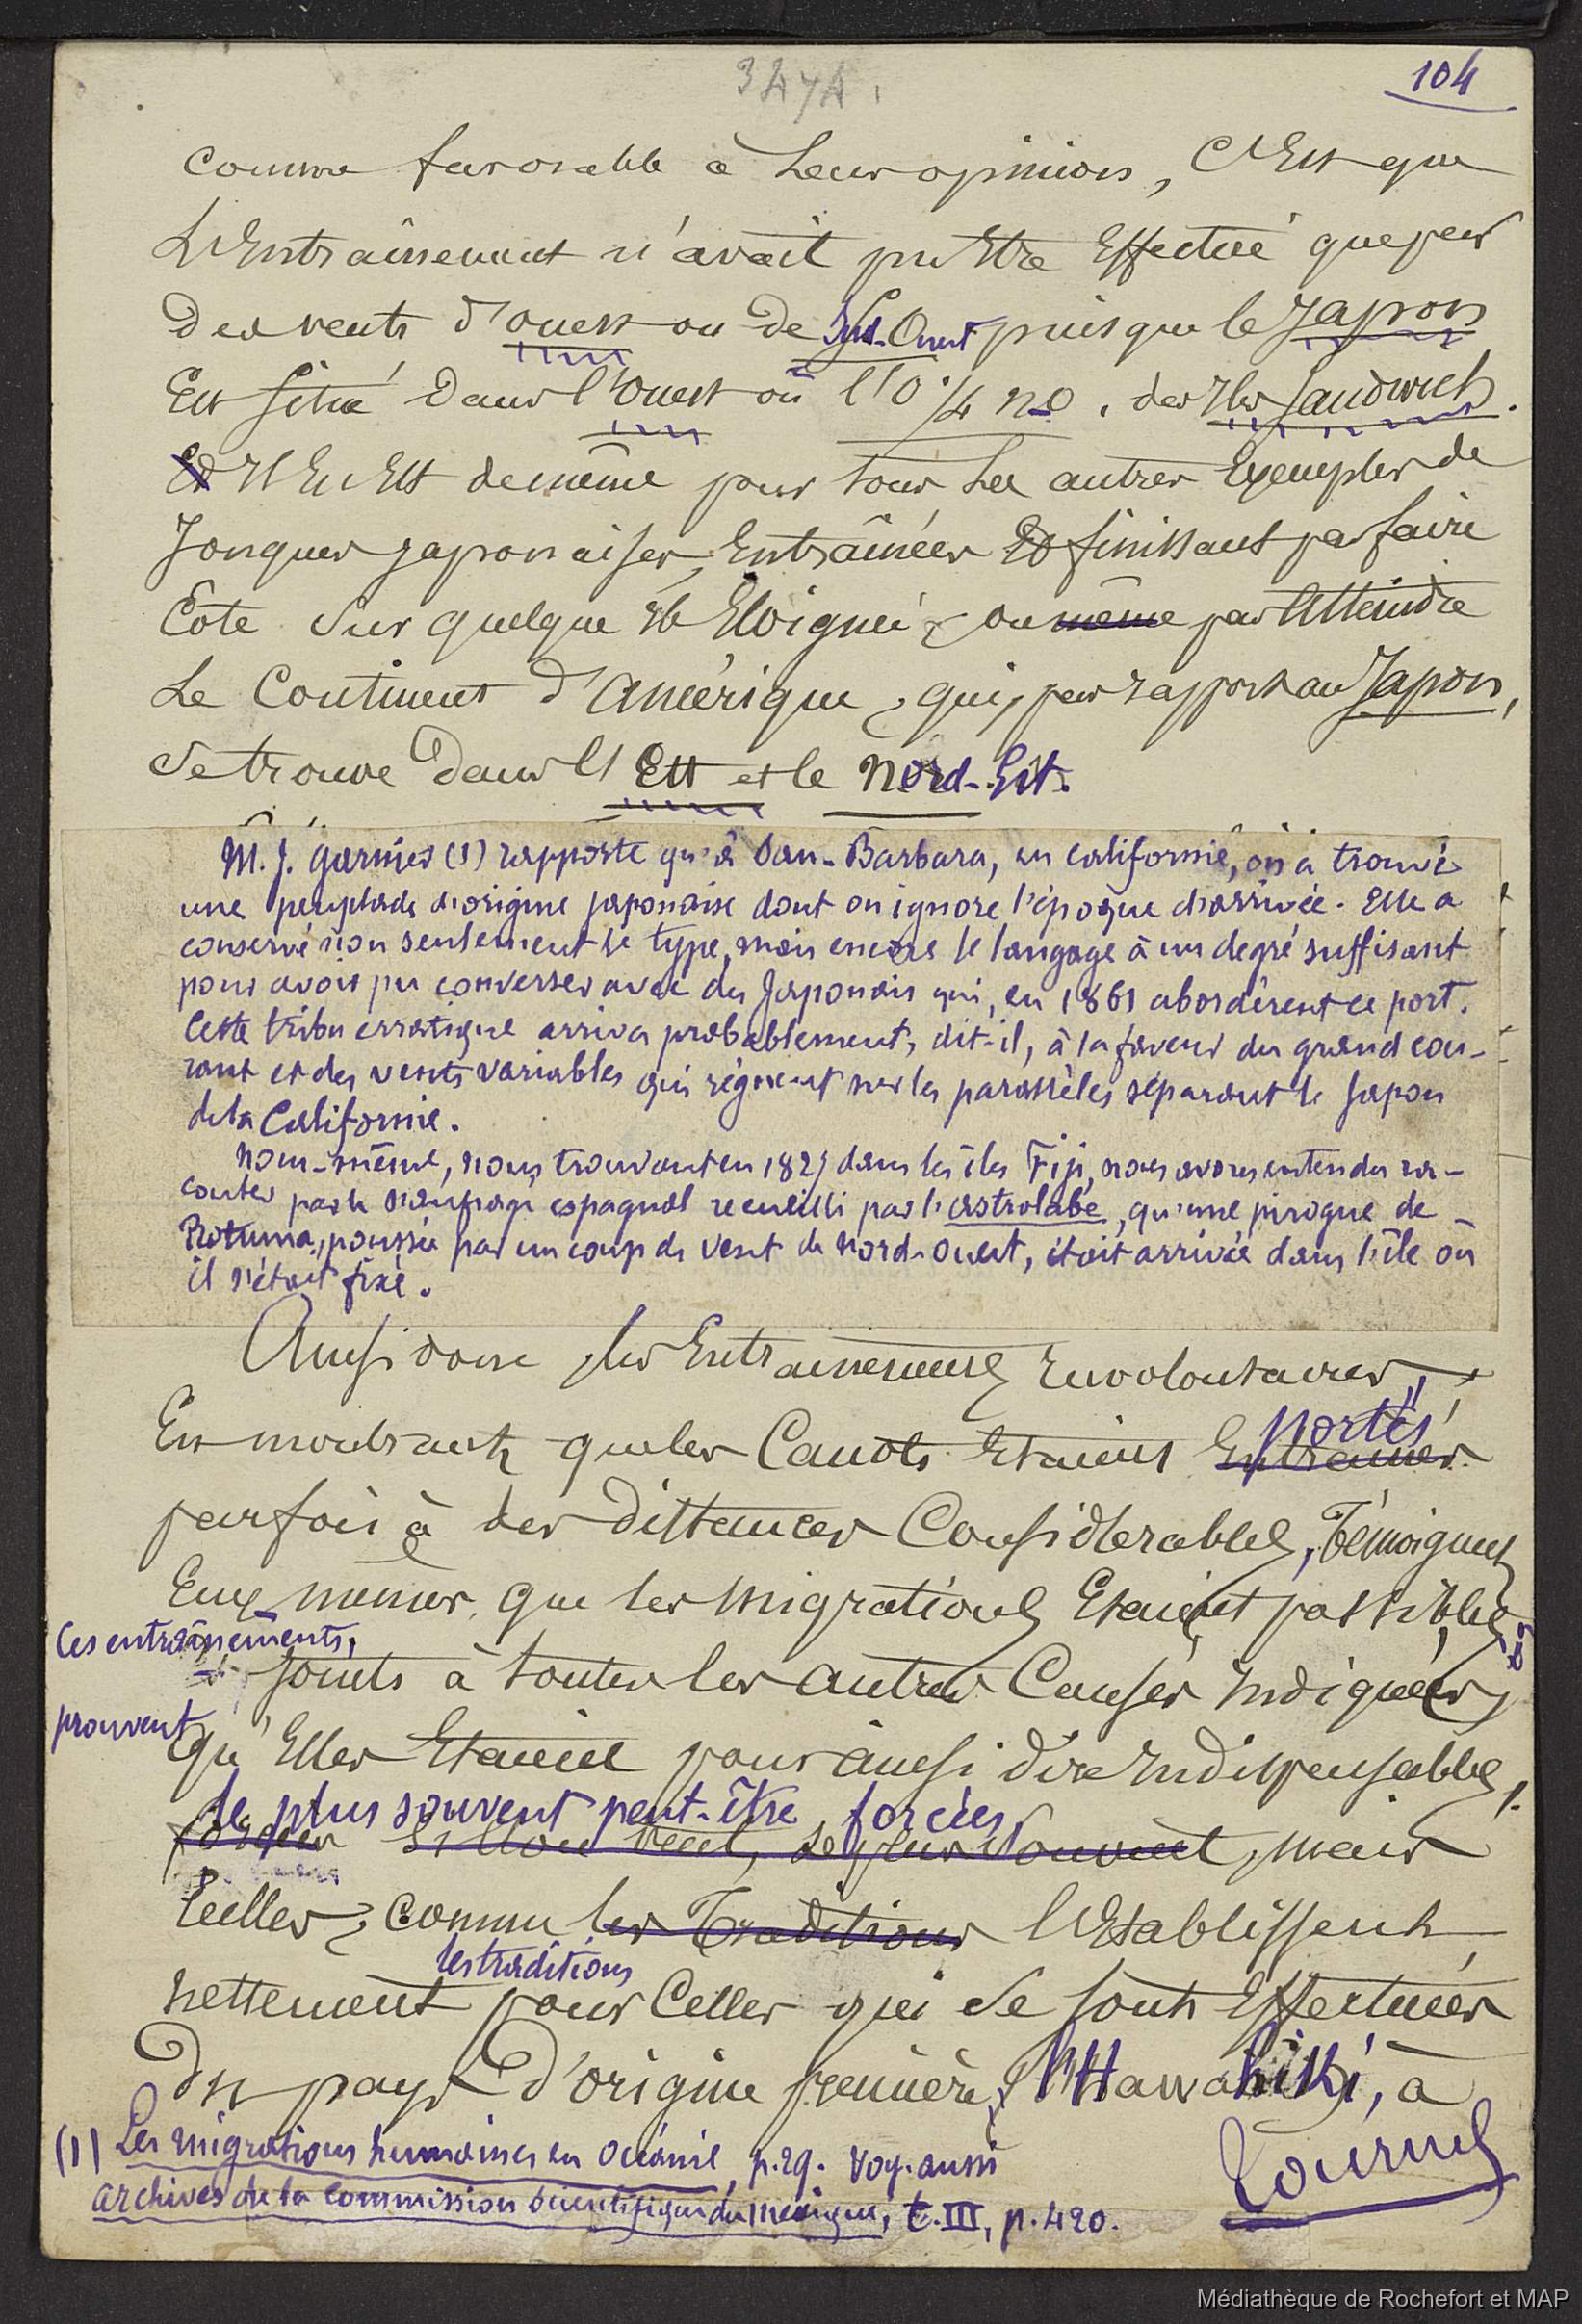 3474.
104
comme favorable à leur opinion, c'Est que
L'Entraînement n'avait pu Etre Effectué que par
des vents d'ouest ou de Sud-Ouest puisque le Japon
Est situé dans l'ouest ou l'O 1/4 no. des Iles Sandwich.
Il En Est de même pour tous les autres Exemples de
Jonques japonaises, Entraînées Et finissant par faire
Côte sur quelque Ile Eloignée, ou même par Atteindre
Le Continent d'Amérique, qui, par rapport au Japon,
se trouve dans l'Est et le Nord-Est.
M. J. Garnier (1) rapporte qu'à San-Barbara, en Californie, on a trouvé
une peuplade d'origine japonaise dont on ignore l'époque d'arrivée. Elle a
conservé non seulement le type, mais encore le langage à un degré suffisant
pour avoir pu converser avec des Japonais qui, en 1861 abordèrent ce port.
Cette tribu erratique arriva probablement, dit-il, à la faveur du grand cou-
rant et des vents variables qui règnent sur les parallèles séparant le Japon
de la Californie.
Nous-même, nous trouvant en 1827 dans les îles Fiji, nous avons entendu ra-
conter par le naufragé espagnol recueilli par l'astrolabe, qu'une pirogue de
Rotuma, poussée par un coup de vent de Nord-Ouest, était arrivée dans l'île où
il s'était fixé.
Ainsi donc, les Entrainements Involontaires,
En montrant que les Canots Etaient Entrainés
portés
parfois à des distances Considérables, Témoignent
Eux mêmes que les migrations Etaient possibles
Ces entraînements,
joints à toutes les autres Causes indiquées,
prouvent
qu'Elles Etaient pour ainsi dire Indispensables,
le plus souvent peut-être forcées,
forcées si l'on veut, le plus souvent, mais
réelles, comme les Traditions l'Etablissent
les traditions
nettement pour Celles qui se sont Effectuées
Du pays d'origine première, l'Hawahiki, à
(1) Les migrations humaines en Océanie, p. 29. Voy. aussi
archives de la Commission Scientifique du Mexique, t. III, p. 420.
Tournez
Médiathèque de Rochefort et MAP